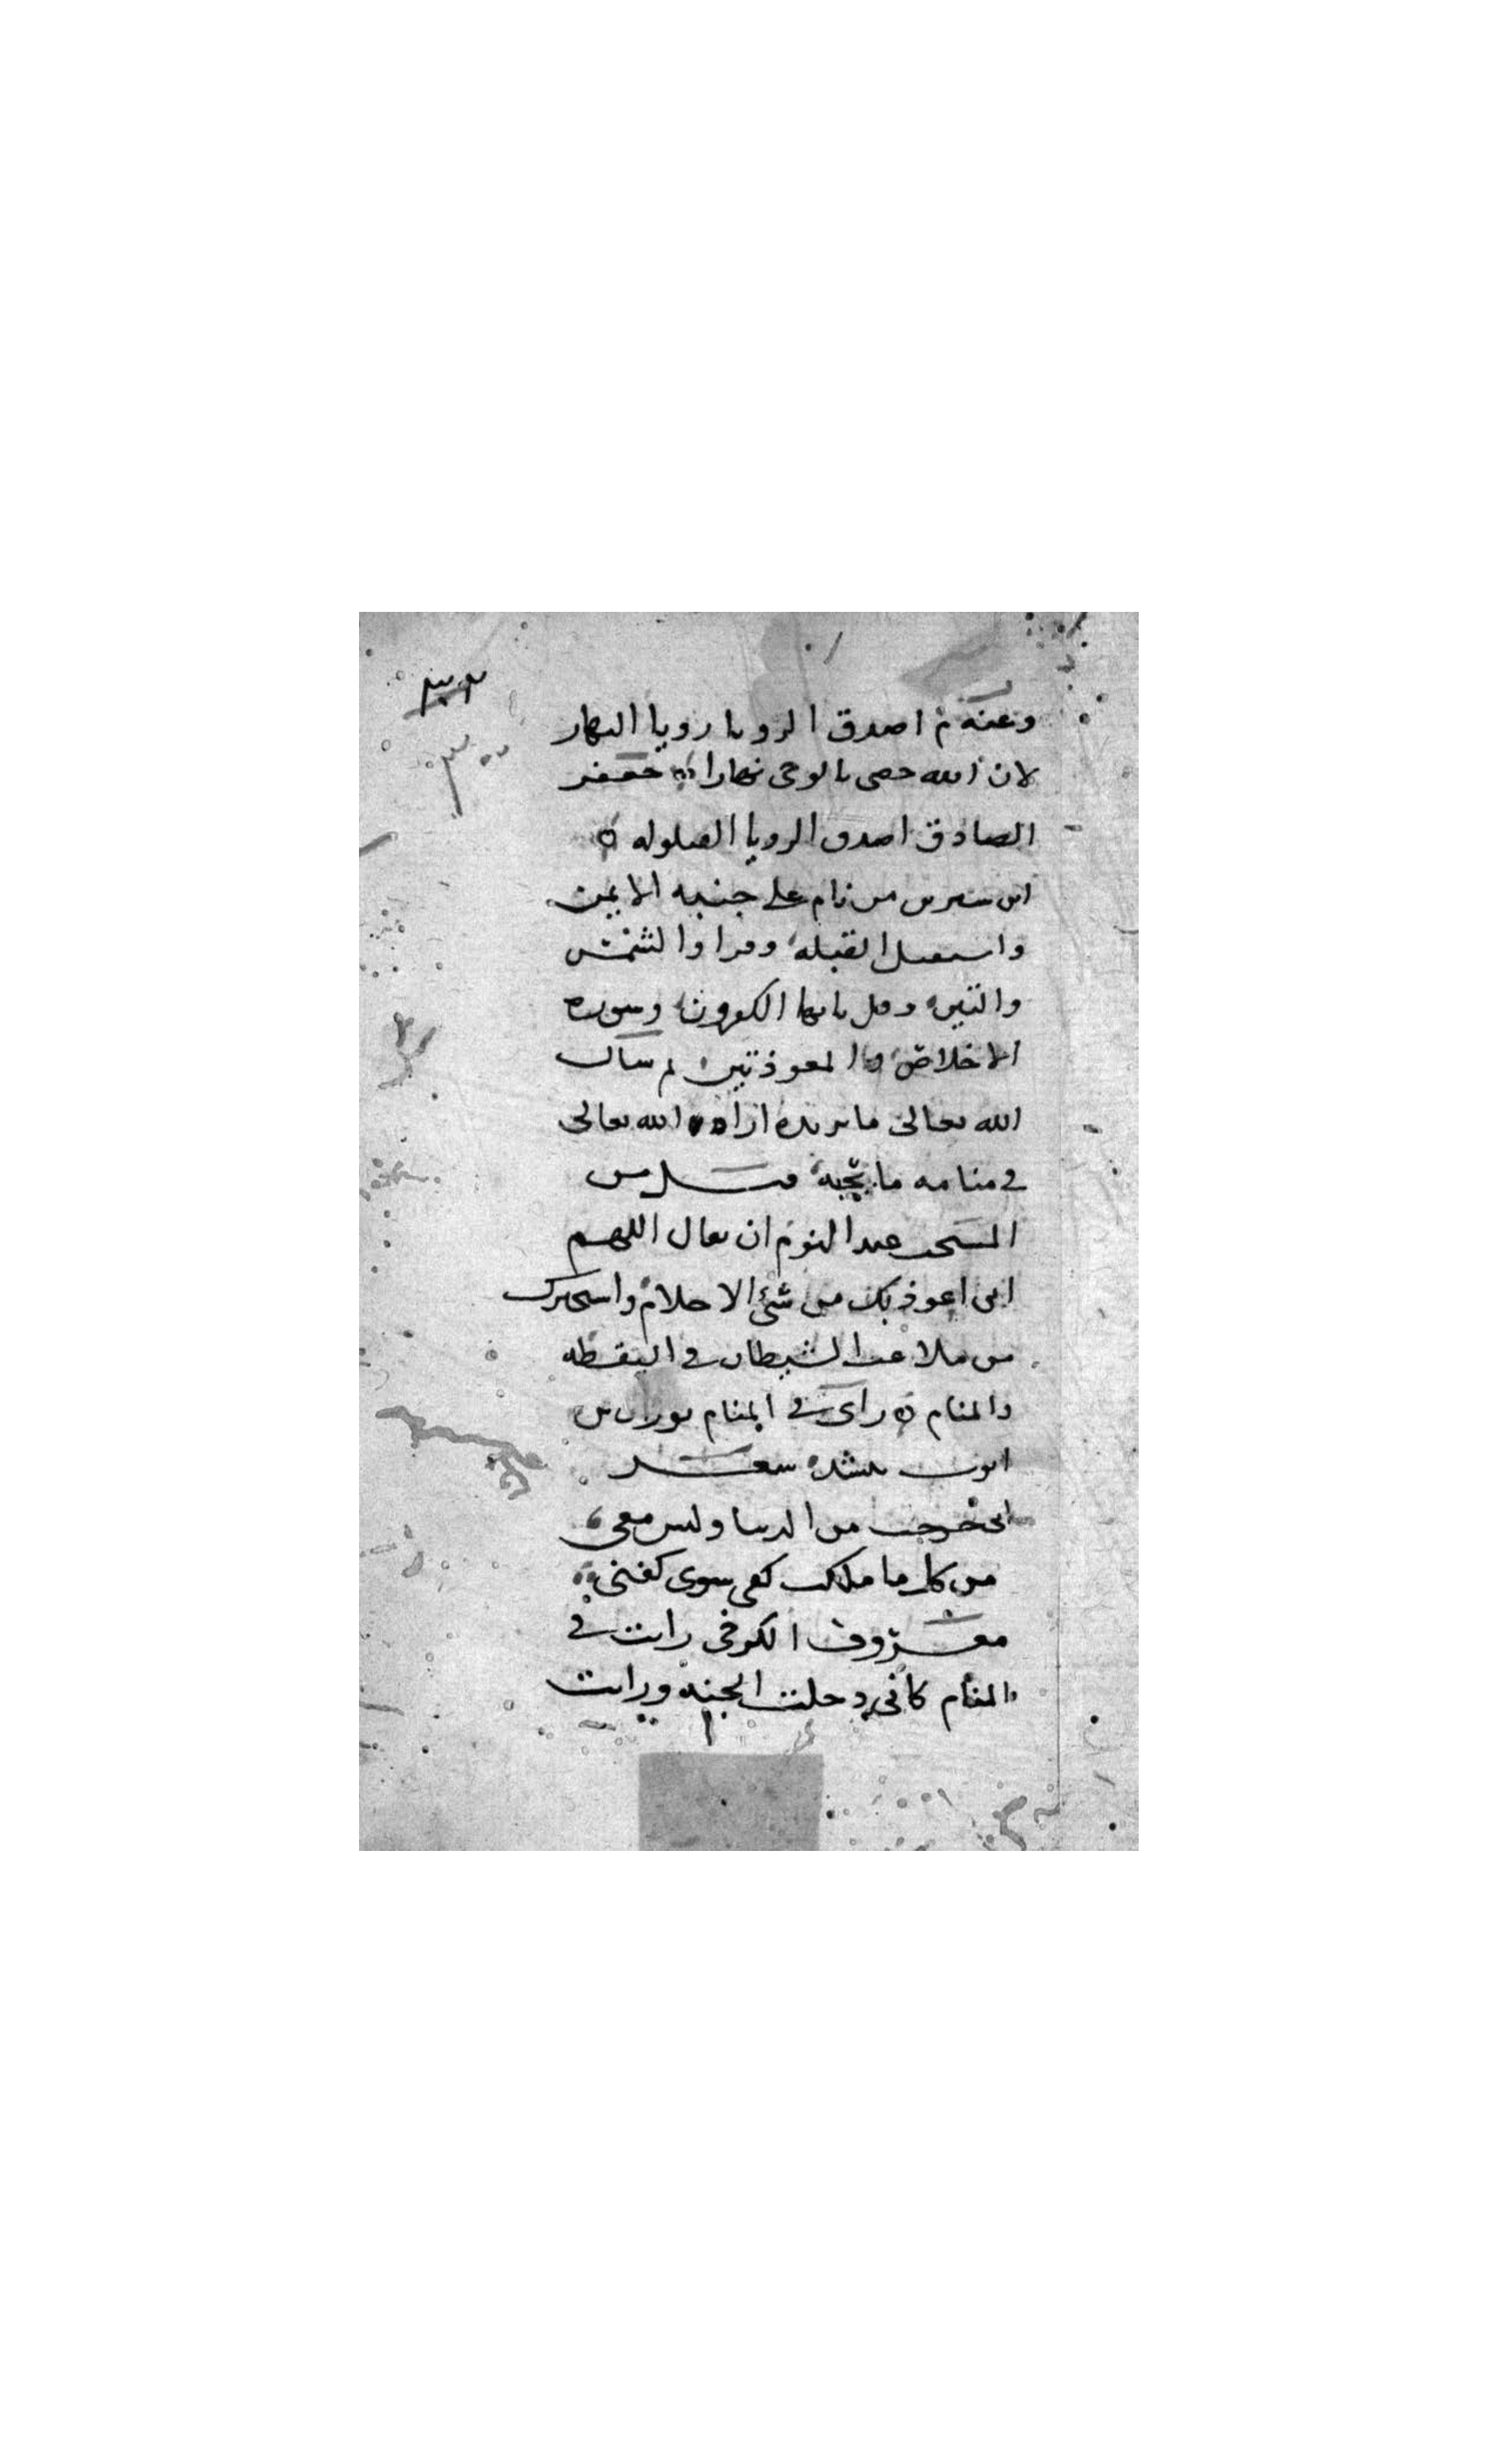 ٣٠٢
٣٠٠
وعنه م اصدق الرويا رويا النهار
لان الله خصني بالوحي نهارا جعفر
الصادق اصدق الرويا القيلوله ه
ابن سيرين من نام على جنبه الايمن
واستقبل القبله وقرا والشمس
والتين وقل يايها الكفرون وسوره
الاخلاص والمعوذتين ثم سال
الله تعالى ما يريده اراه الله تعالى
في منامه ما يحبه من
المستحب عند النوم ان يقال اللهم
اني اعوذ بك من سيئ الاحلام واستجيرك
من ملاعب الشيطان في اليقظه
والمنام ه راى في المنام بن
ايوب ينشد
اني خرجت من الدنيا وليس معي
من كل ما ملكت كفي سوى كفني
معروف الكرخي رايت في
المنام كاني دخلت الجنه ورايت